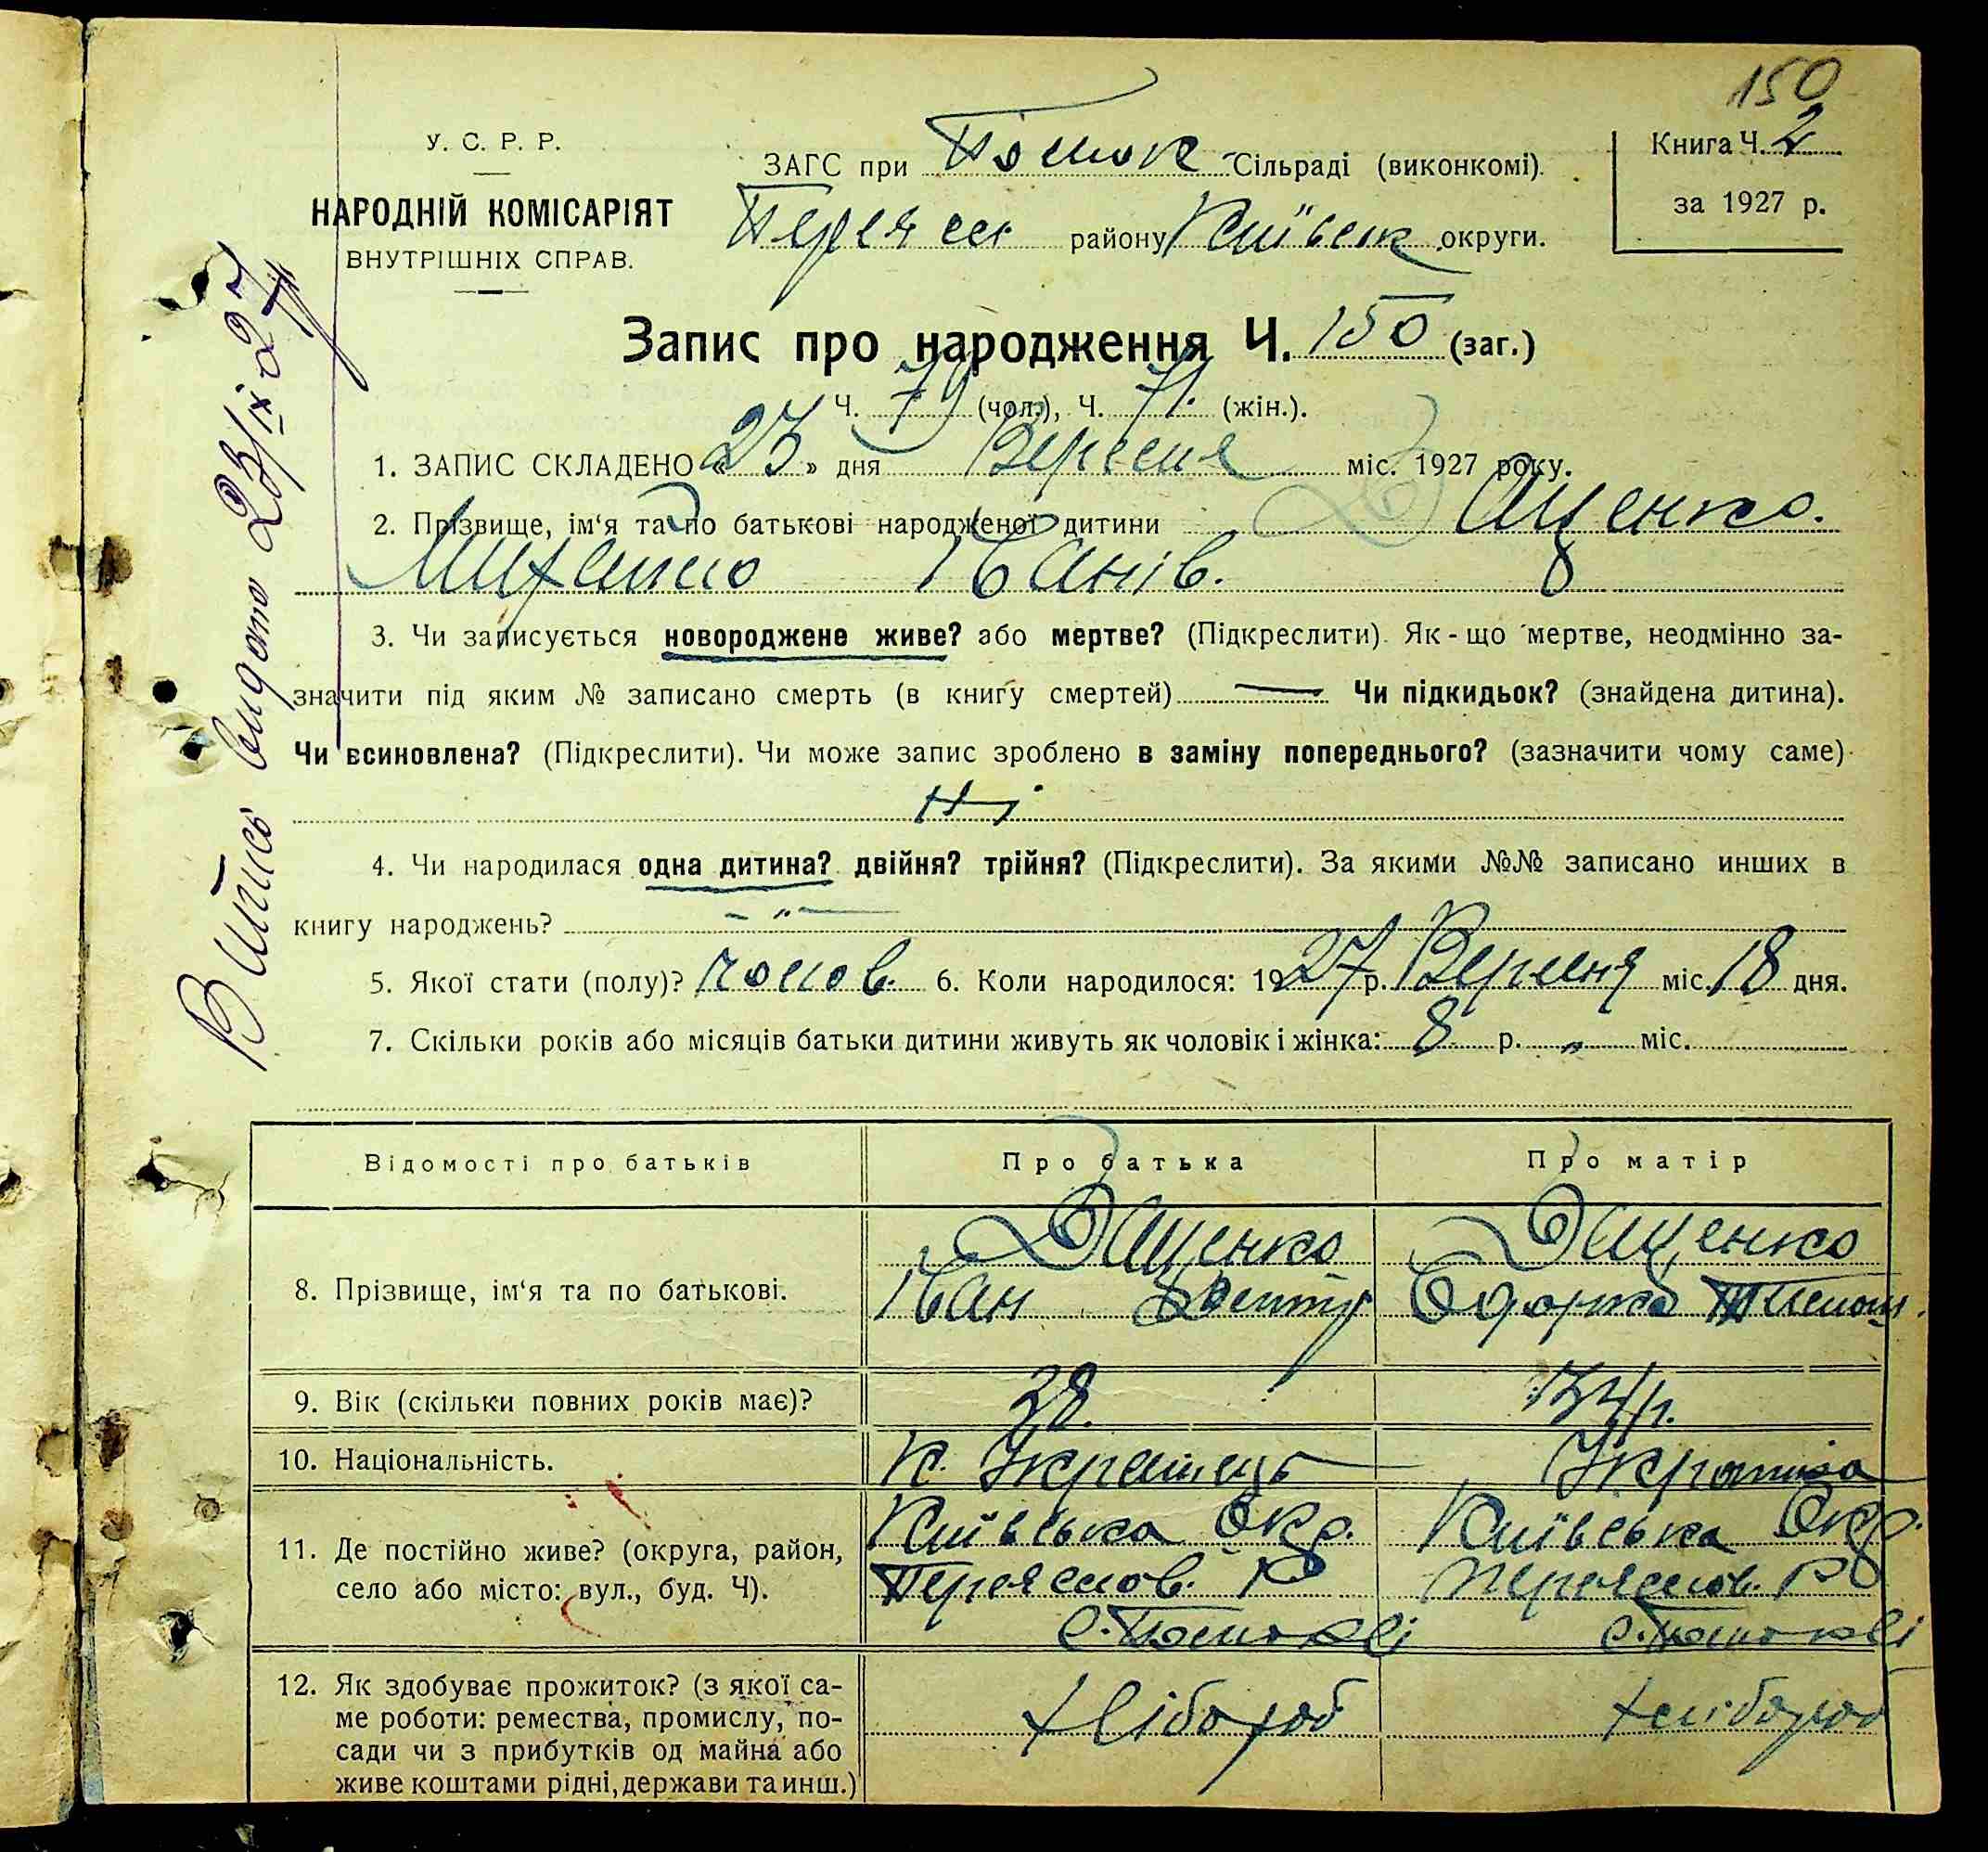 150
У. С. Р. Р.
НАРОДНІЙ КОМІСАРІЯТ
ВНУТРІШНІХ СПРАВ.
ЗАГС при Помок Сільраді (виконкомі).
Переясл району Київськ округи.
Книга Ч. 2
за 1927 р.
Випись видато 23/ІХ 27
Запис про народження Ч. 150 (заг.)
Ч. 79 (чол.), Ч. 71. (жін.).
1. ЗАПИС СКЛАДЕНО «23» дня Вересня міс. 1927 року.
2. Прізвище, ім‘я та по батькові народженої дитини Даценко.
Михайло Іванів.
3. Чи записується новороджене живе? або мертве? (Підкреслити). Як-що мертве, неодмінно за-
значити під яким № записано смерть (в книгу смертей) — Чи підкидьок? (знайдена дитина).
Чи всиновлена? (Підкреслити). Чи може запис зроблено в заміну попереднього? (зазначити чому саме)
Ні
4. Чи народилася одна дитина? двійня? трійня? (Підкреслити). За якими №№ записано инших в
книгу народжень? — „ —
5. Якої стати (полу)? чолов. 6. Коли народилося: 1927 р. Вересня міс. 18 дня.
7. Скільки років або місяців батьки дитини живуть як чоловік і жінка: 8 р. „ міс.
Відомості про батьків Про батька Про матір
8. Прізвище, ім‘я та по батькові.
Даценко Даценко
Іван Дмитр Одарка Тимош.
9. Вік (скільки повних років має)? 38. 34 р.
10. Національність. Українець Українка
11. Де постійно живе? (округа, район,
село або місто: вул., буд. Ч).
Київська Окр. Київська Окр.
Переяслов. Р Переяслов. Р
с. Помоклі с. Помоклі
12. Як здобуває прожиток? (з якої са-
ме роботи: ремества, промислу, по-
сади чи з прибутків од майна або
живе коштами рідні, держави та инш.)
хлібороб хлібороб